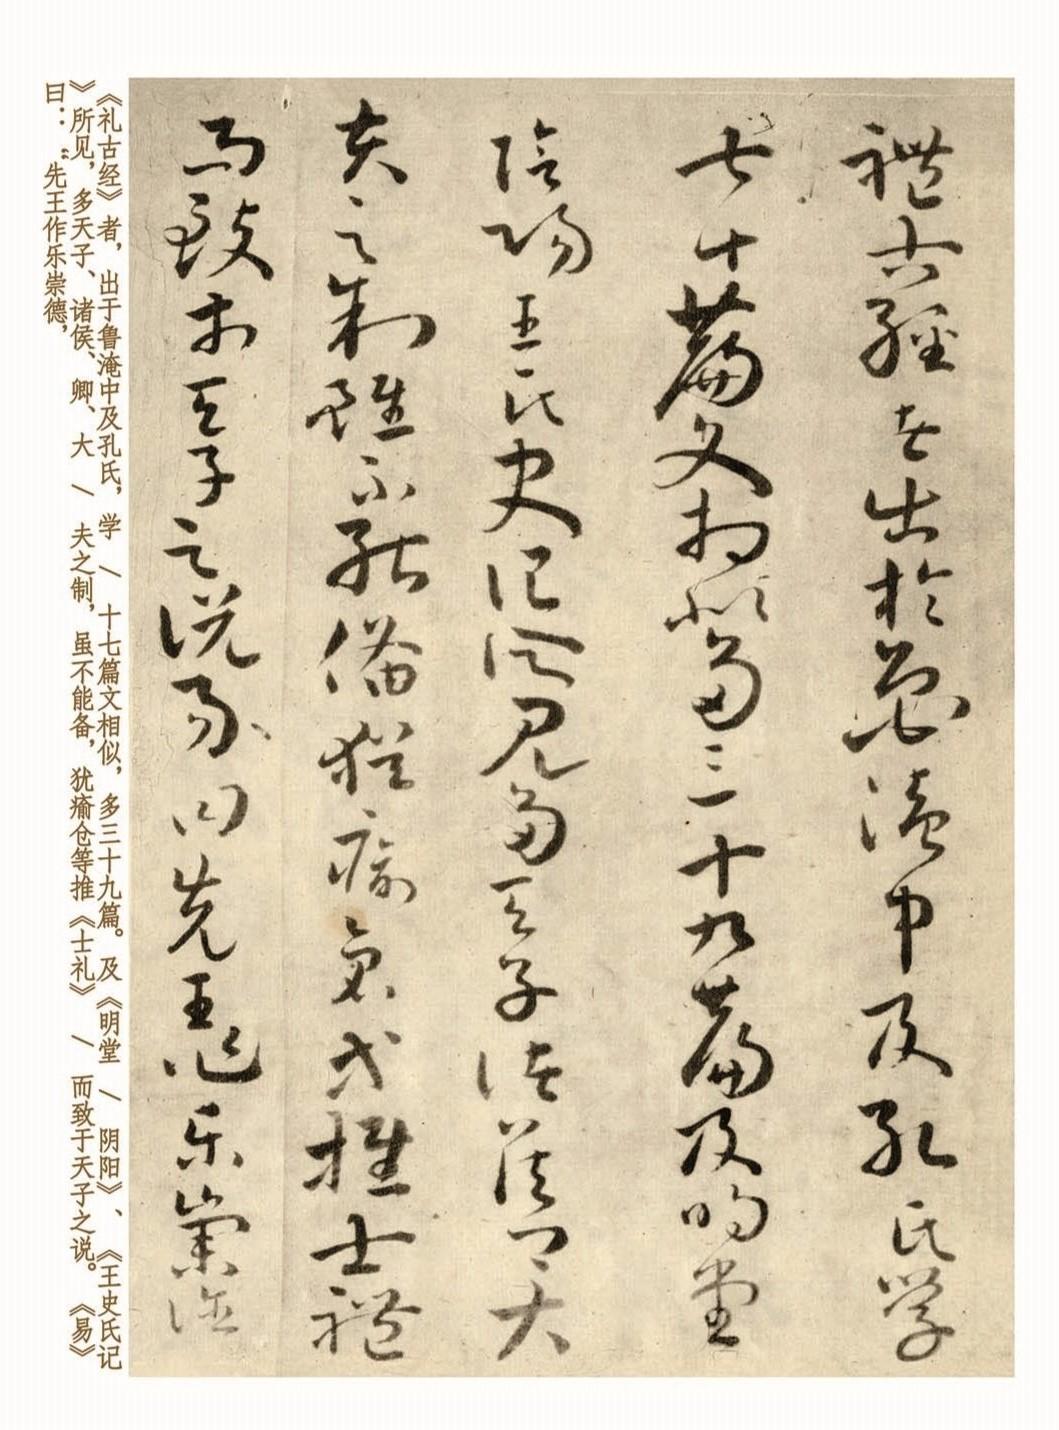 禮古經者出於魯淹中及孔氏學
七十篇文相似多三十九篇及明堂
陰陽王氏史記所見多天子諸侯卿大
夫之制雖不能備猶瘉倉等推士禮
而致於天子之說易曰先王作樂崇德
《礼古经》者，出于鲁淹中及孔氏，学 / 十七篇文相似，多三十九篇。及《明堂 / 阴阳》、《王史氏记
》所见，多天子、诸侯、卿、大 / 夫之制，虽不能备，犹瘉仓等推《士礼》 / 而致于天子之说。《易》
曰：“先王作乐崇德，